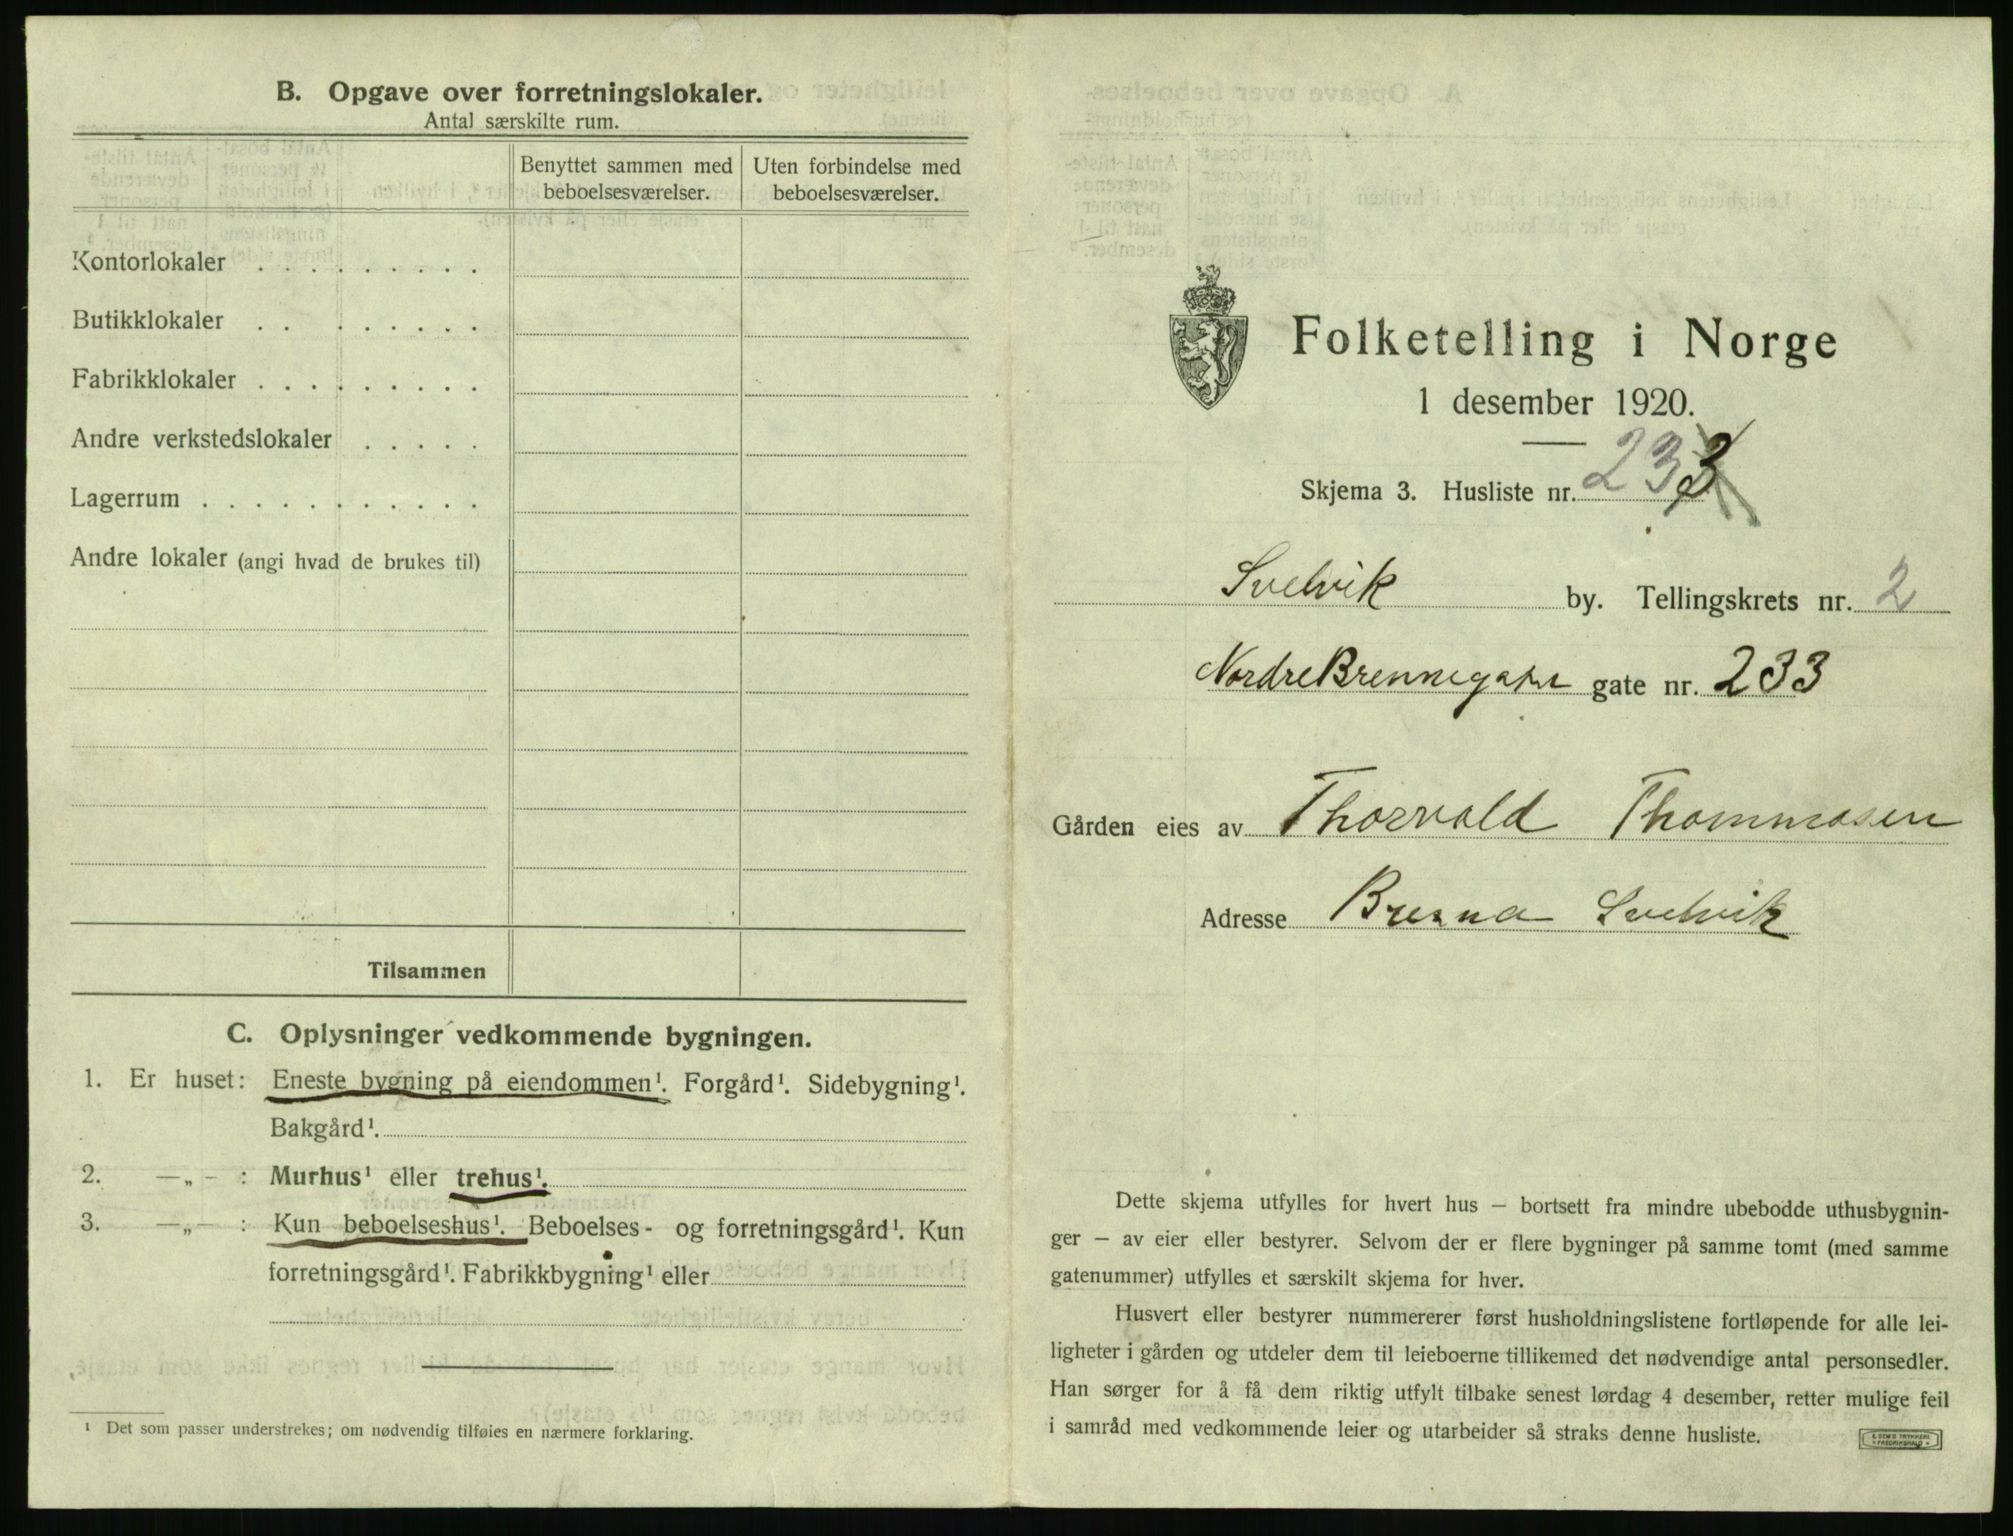 B. Opgave over forretningslokaler.
Antal særskilte rum.
Benyttet sammen med beboelsesværelser.
Uten forbindelse med beboelsesværelser.
Kontorlokaler . . . . . . . . .
Butikklokaler . . . . . . . .
Fabrikklokaler . . . . . . . . .
Andre verkstedslokaler . . . . .
Lagerrum . . . . . . . . . . .
Andre lokaler (angi hvad de brukes til)
Tilsammen
C. Oplysninger vedkommende bygningen.
1. Er huset: Eneste bygning på eiendommen¹. Forgård¹. Sidebygning¹.
Bakgård¹.
2. —„- : Murhus¹ eller trehus¹.
3. —„- : Kun beboelseshus¹. Beboelses- og forretningsgård¹. Kun
forretningsgård¹. Fabrikkbygning¹ eller
¹ Det som passer understrekes; om nødvendig tilføies en nærmere forklaring.
Folketelling i Norge
1 desember 1920.
Skjema 3. Husliste nr. 23 3
Svelvik by. Tellingskrets nr. 2
Nordre Brennegate gate nr. 233
Gården eies av Thorvald Thommasen
Adresse Brenna Svelvik
Dette skjema utfylles for hvert hus – bortsett fra mindre ubebodde uthusbygnin-
ger – av eier eller bestyrer. Selvom der er flere bygninger på samme tomt (med samme
gatenummer) utfylles et særskilt skjema for hver.
Husvert eller bestyrer nummererer først husholdningslistene fortløpende for alle lei-
ligheter i gården og utdeler dem til leieboerne tillikemed det nødvendige antal personsedler.
Han sørger for å få dem riktig utfylt tilbake senest lørdag 4 desember, retter mulige feil
i samråd med vedkommende leier og utarbeider så straks denne husliste.